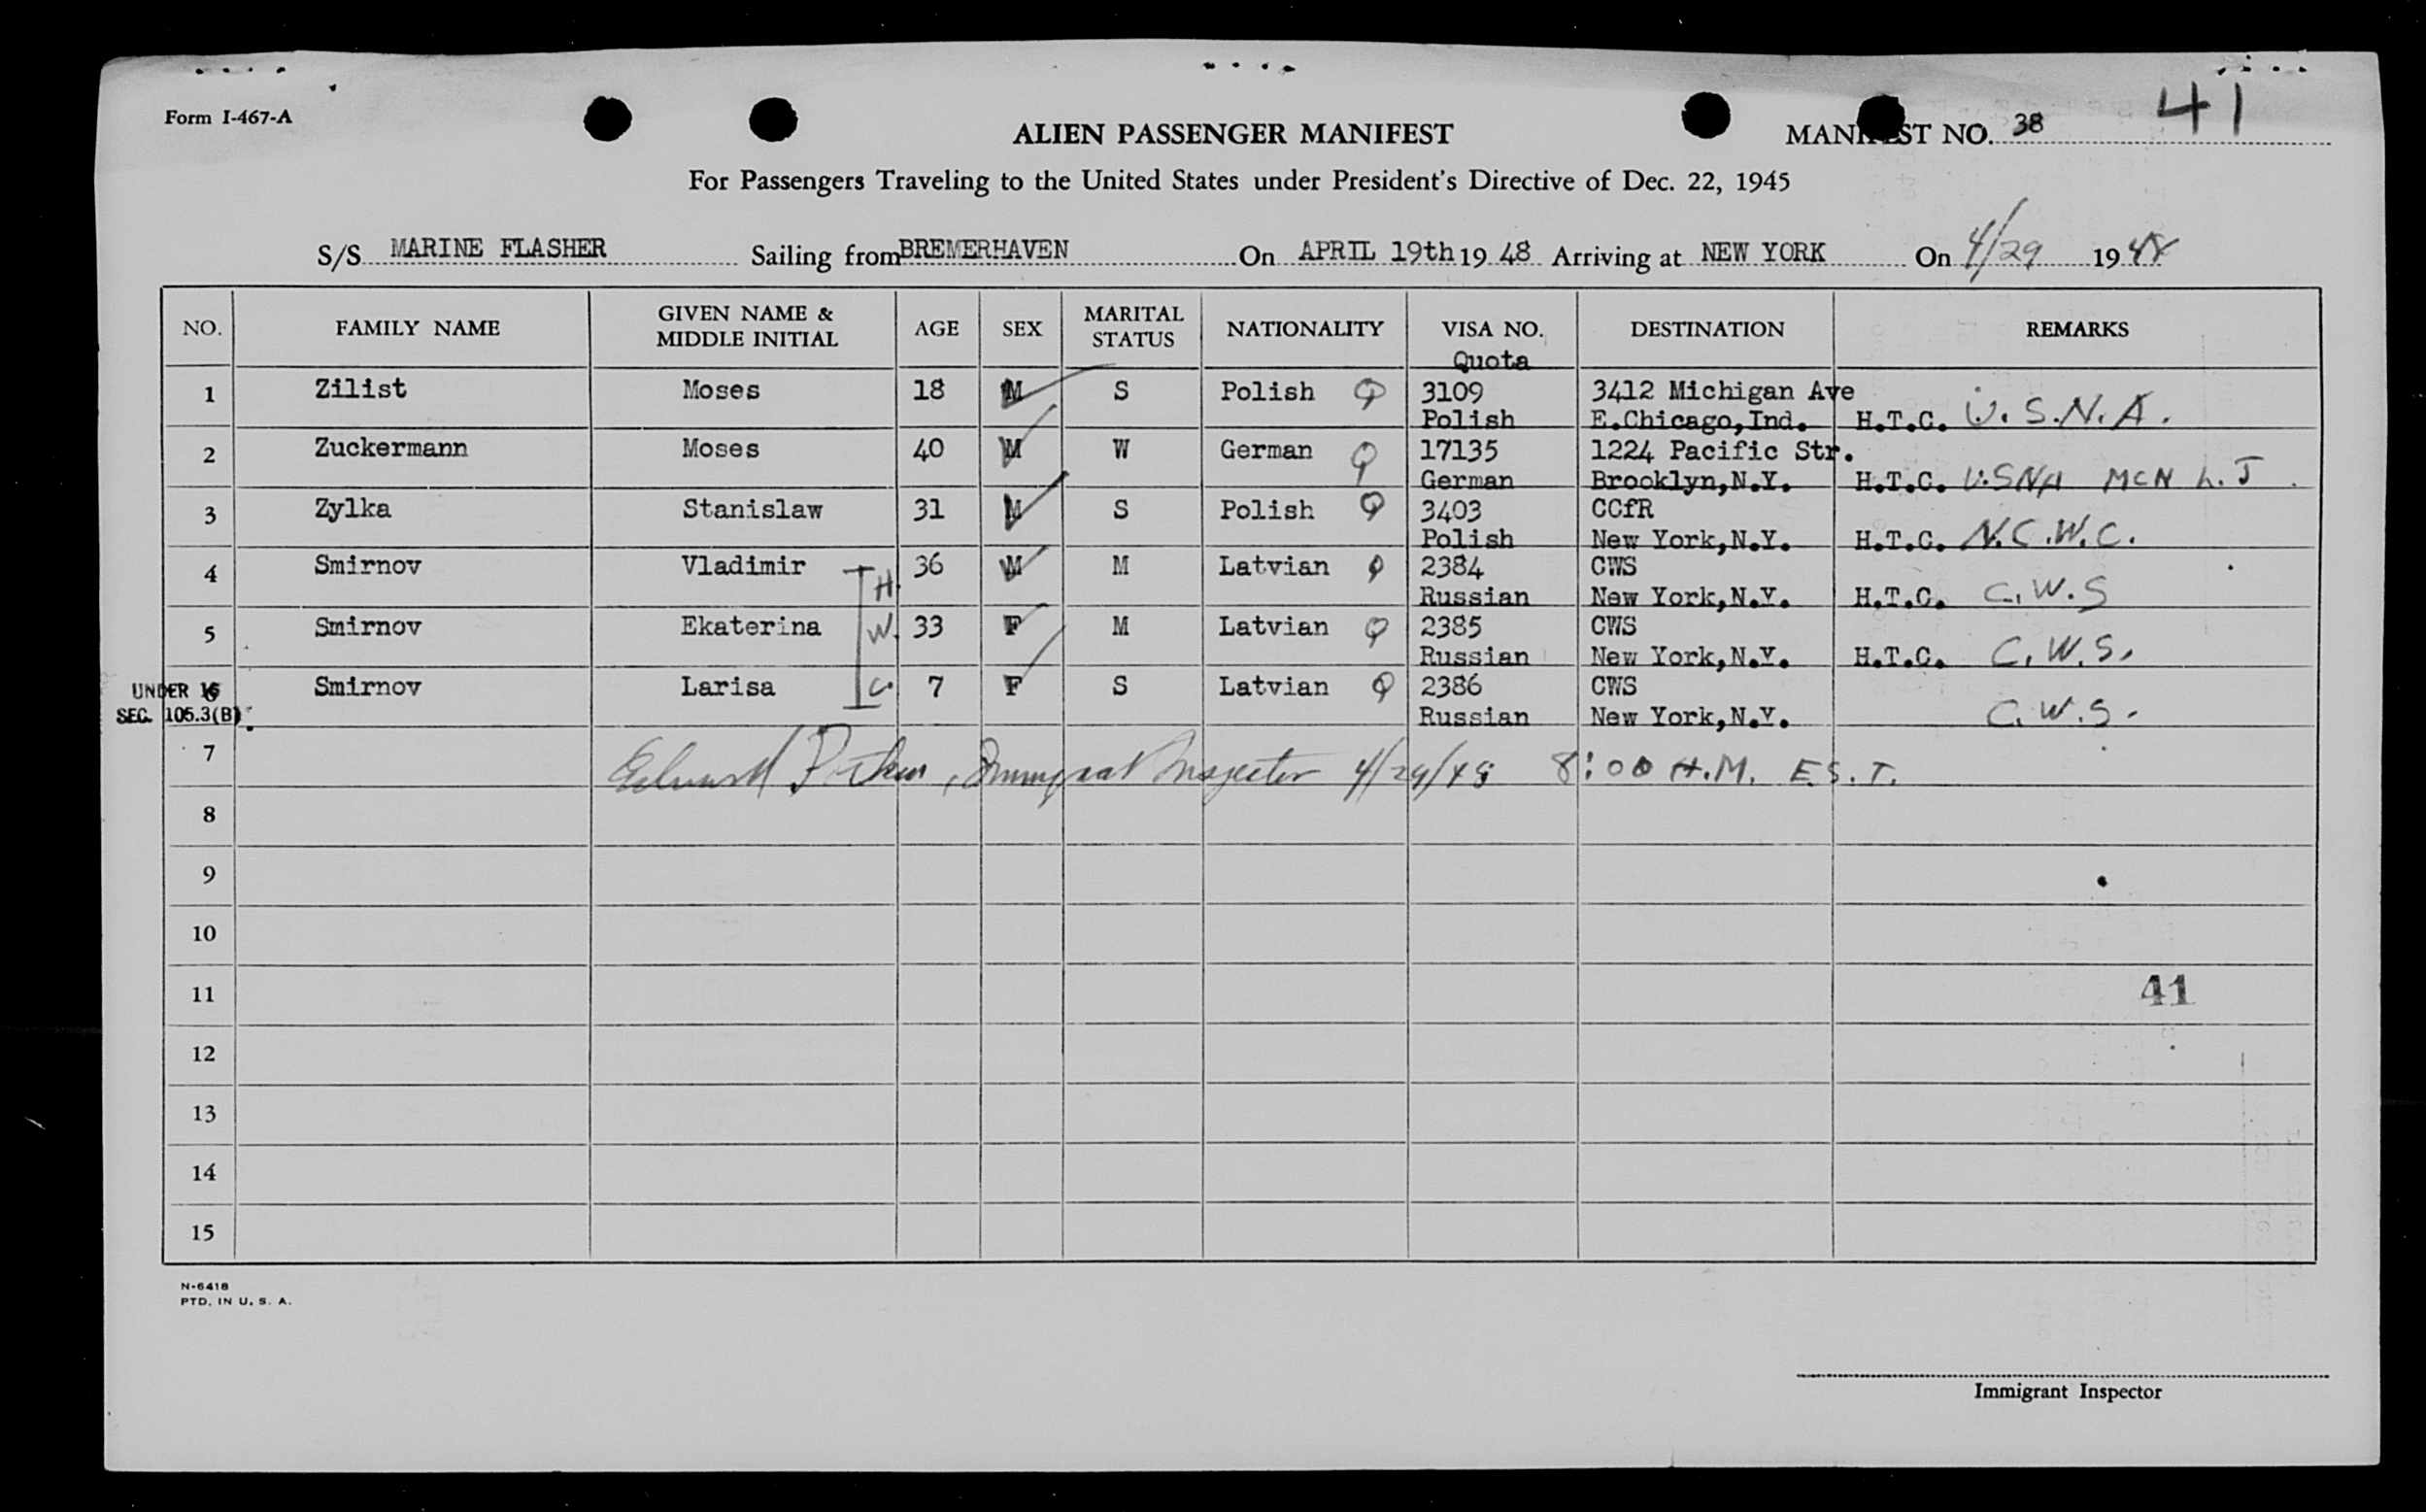 Form I-467-A
41
ALIEN PASSENGER MANIFEST
MANIFEST NO. 38
For Passengers Traveling to the United States under President's Directive of Dec. 22, 1945
S/S MARINE FLASHER Sailing from BREMERHAVEN On APRIL 19th 19 48 Arriving at NEW YORK On 4/29 19 48
NO. FAMILY NAME GIVEN NAME & MIDDLE INITIAL AGE SEX MARITAL STATUS NATIONALITY VISA NO. DESTINATION REMARKS
Quota
1 Zilist Moses 18 M S Polish Q 3109 3412 Michigan Ave
Polish E.Chicago,Ind. H.T.C. U.S.N.A.
2 Zuckermann Moses 40 M W German Q 17135 1224 Pacific Str.
German Brooklyn,N.Y. H.T.C. USNA MCN L.J
3 Zylka Stanislaw 31 M S Polish Q 3403 CCfR
Polish New York,N.Y. H.T.C. N.C.W.C.
4 Smirnov Vladimir H. 36 M M Latvian Q 2384 CWS
Russian New York,N.Y. H.T.C. C.W.S
5 Smirnov Ekaterina W. 33 F M Latvian Q 2385 CWS
Russian New York,N.Y. H.T.C. C.W.S.
UNDER 16 Smirnov Larisa C. 7 F S Latvian Q 2386 CWS
SEC. 105.3(B) Russian New York,N.Y. C.W.S.
7 Edward , Immigrant Inspector 4/29/48 8:00 A.M. E.S.T.
8
9
10
11 41
12
13
14
15
N-6418
PTD. IN U. S. A.
Immigrant Inspector